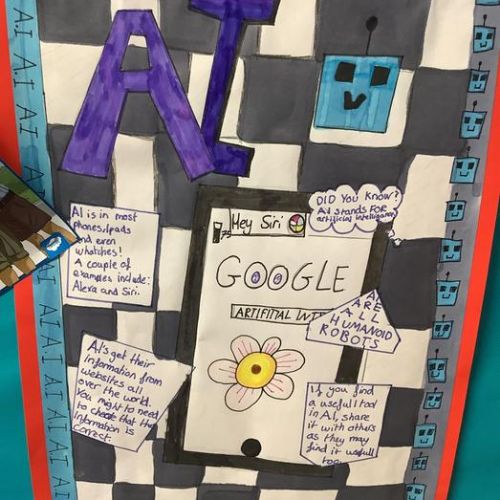 AI
A.I A.I AI
DID YOU KNOW?
AI STANDS FOR
artificial intelligence
Hey Siri
GOOGLE
AI is in most
phones, Ipads
and even
whatches!
A couple of
examples include:
Alexa and Siri.
ARE
ALL
HUMANOID
ROBOTS
AI's get their
information from
websites all
over the world.
You might to need
to check that the
information is
correct.
If you find
a usefull tool
in AI, share
it with others
as they may
find it usefull
too.
AI AI AI AI AI AI AI